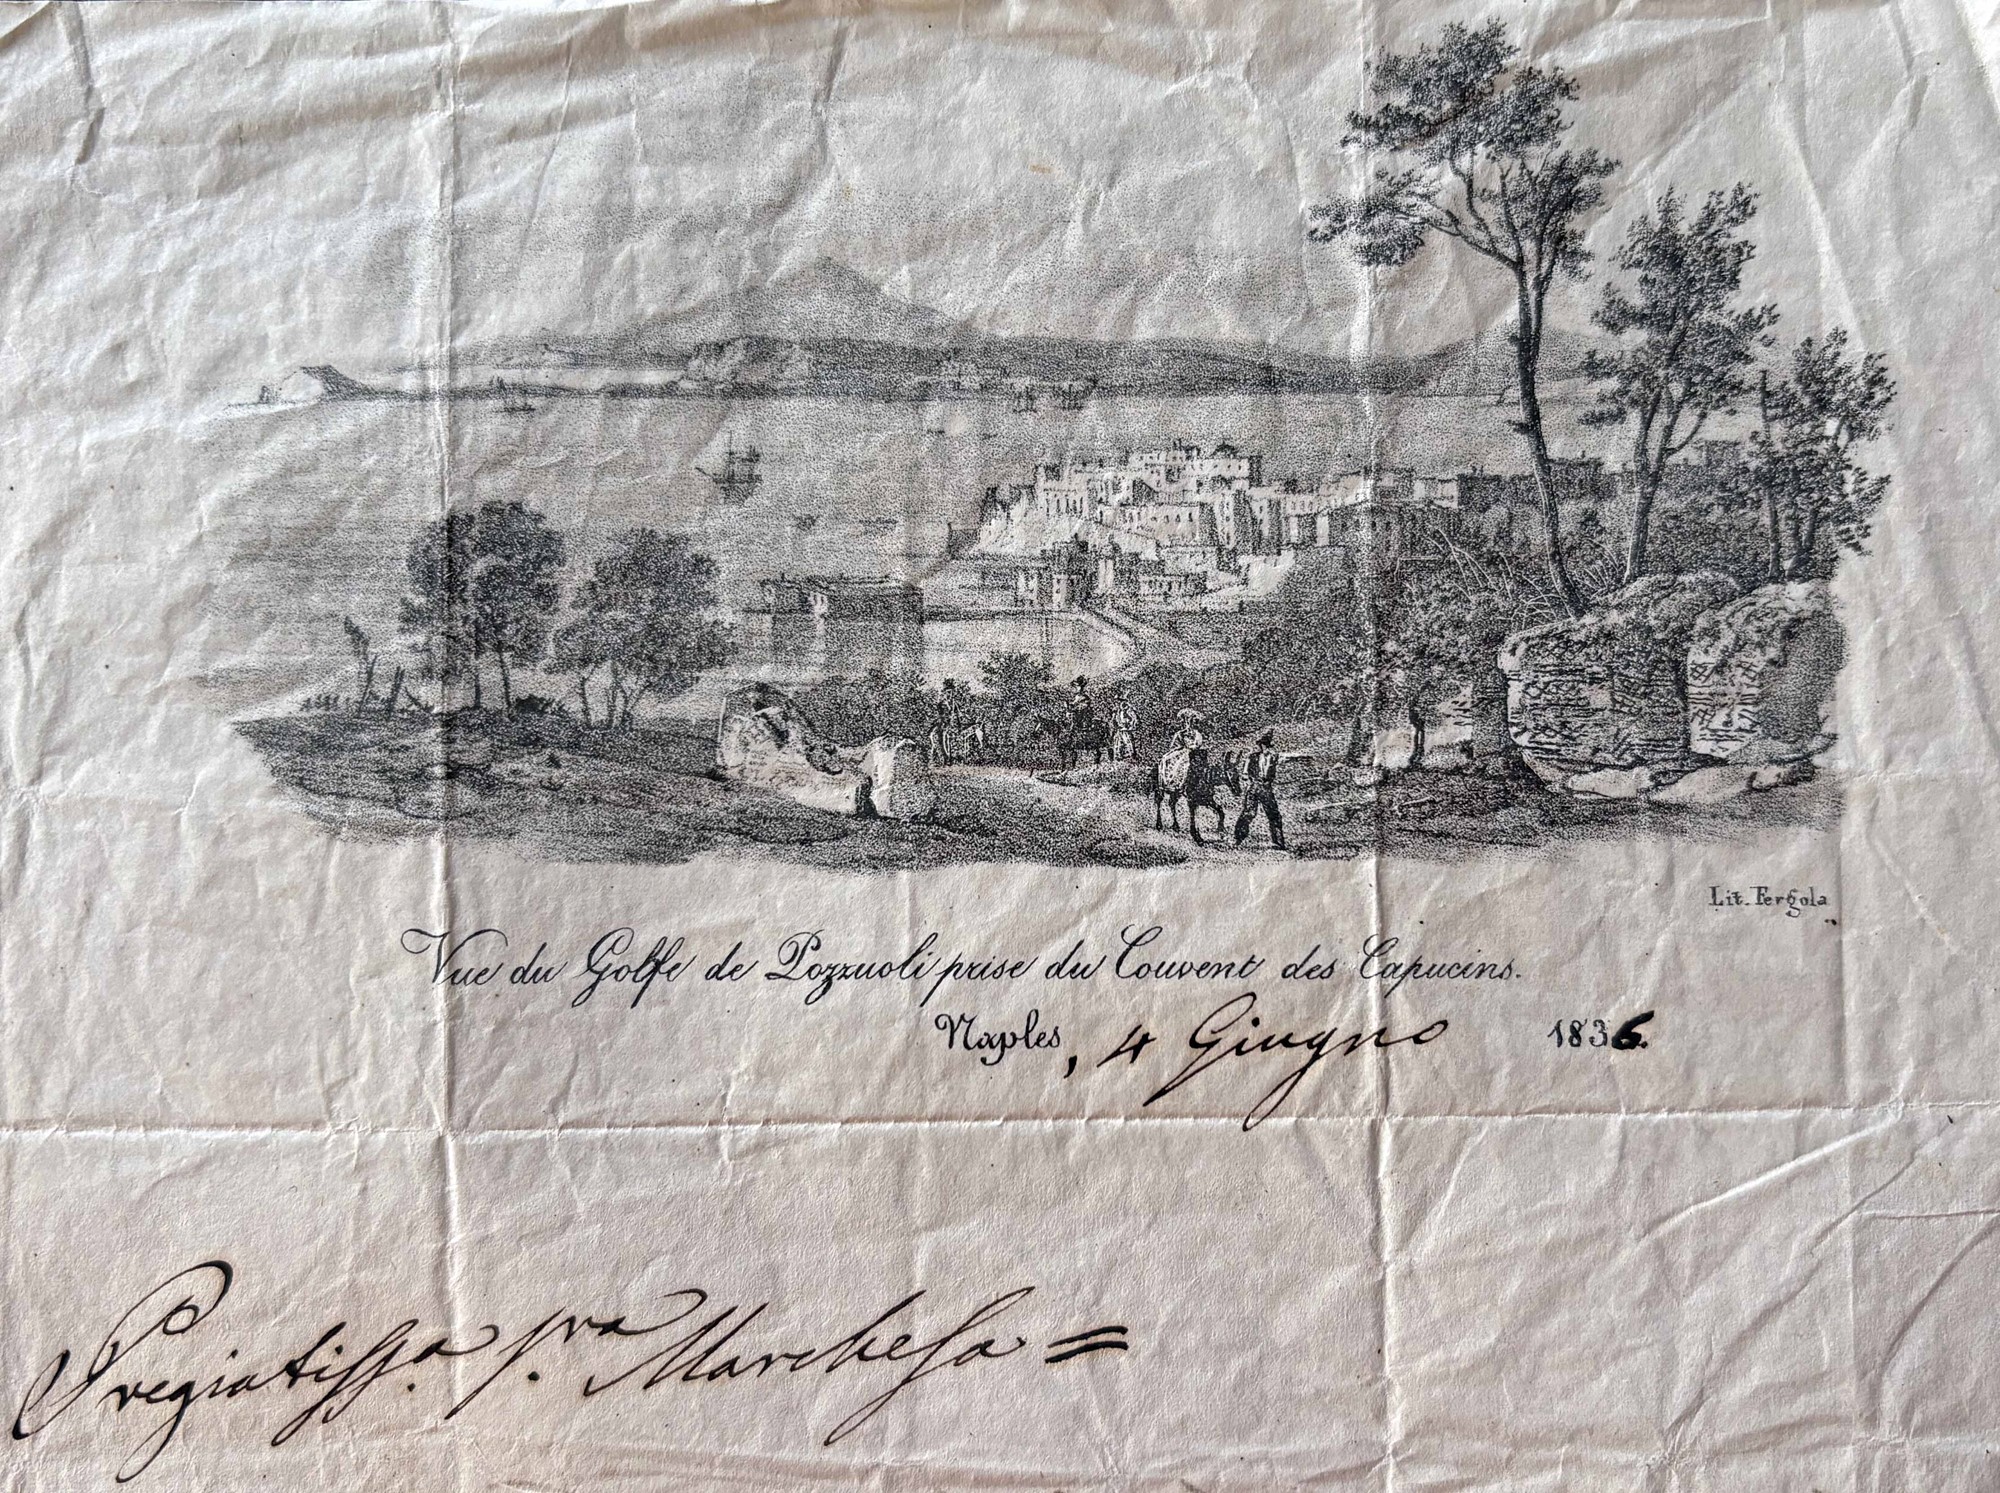 Lit. Fergola
Vue du Golfe de Pozzuoli prise du Couvent des Capucins.
Naples, 4 Giugno 1836.
Pregiatiss.a S.ra Marchesa =